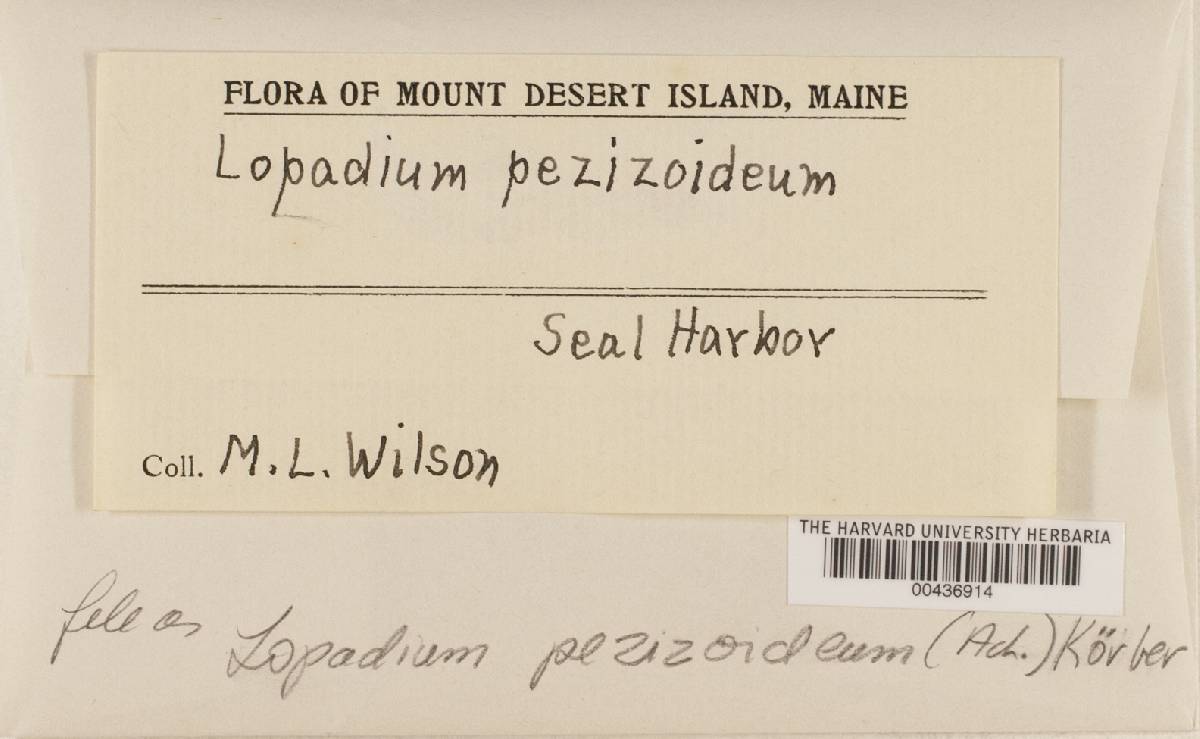 FLORA OF MOUNT DESERT ISLAND, MAINE
Lopadium pezizoideum
Seal Harbor
Coll. M. L. Wilson
THE HARVARD UNIVERSITY HERBARIA
00436914
file as Lopadium pezizoideum (Ach.) Körber